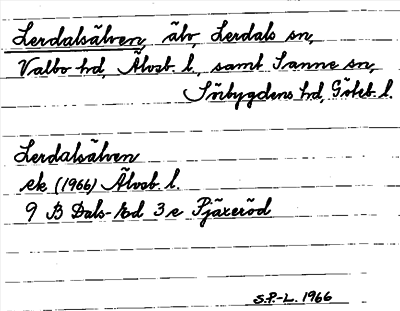 Lerdalsälven, älv, Lerdals sn,
Valbo hd, Älvsb. l., samt Sanne sn,
Sörbygdens hd, Göteb. l.
Lerdalsälven
ek (1966) Älvsb. l.
9 B Dals-Ed 3e Pjäxeröd
S.P.-L. 1966